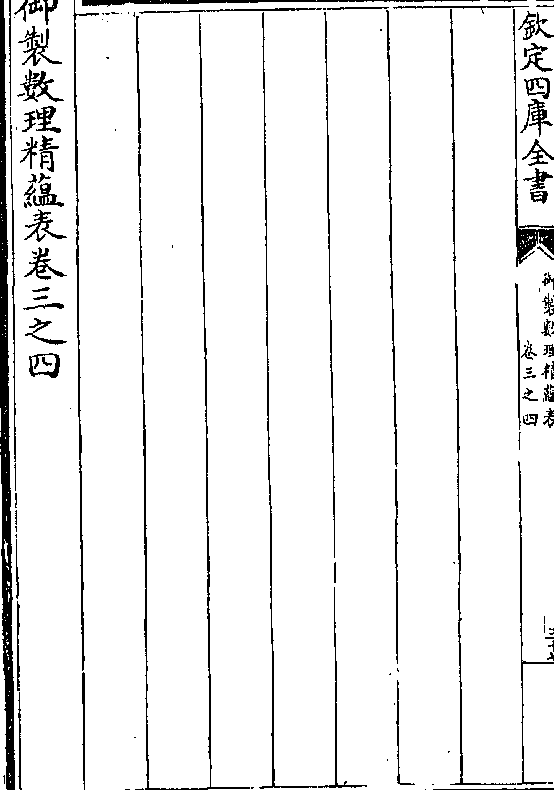 欽定四庫全書
御製數理精蘊表
卷三之四
御製數理精蘊表卷三之四